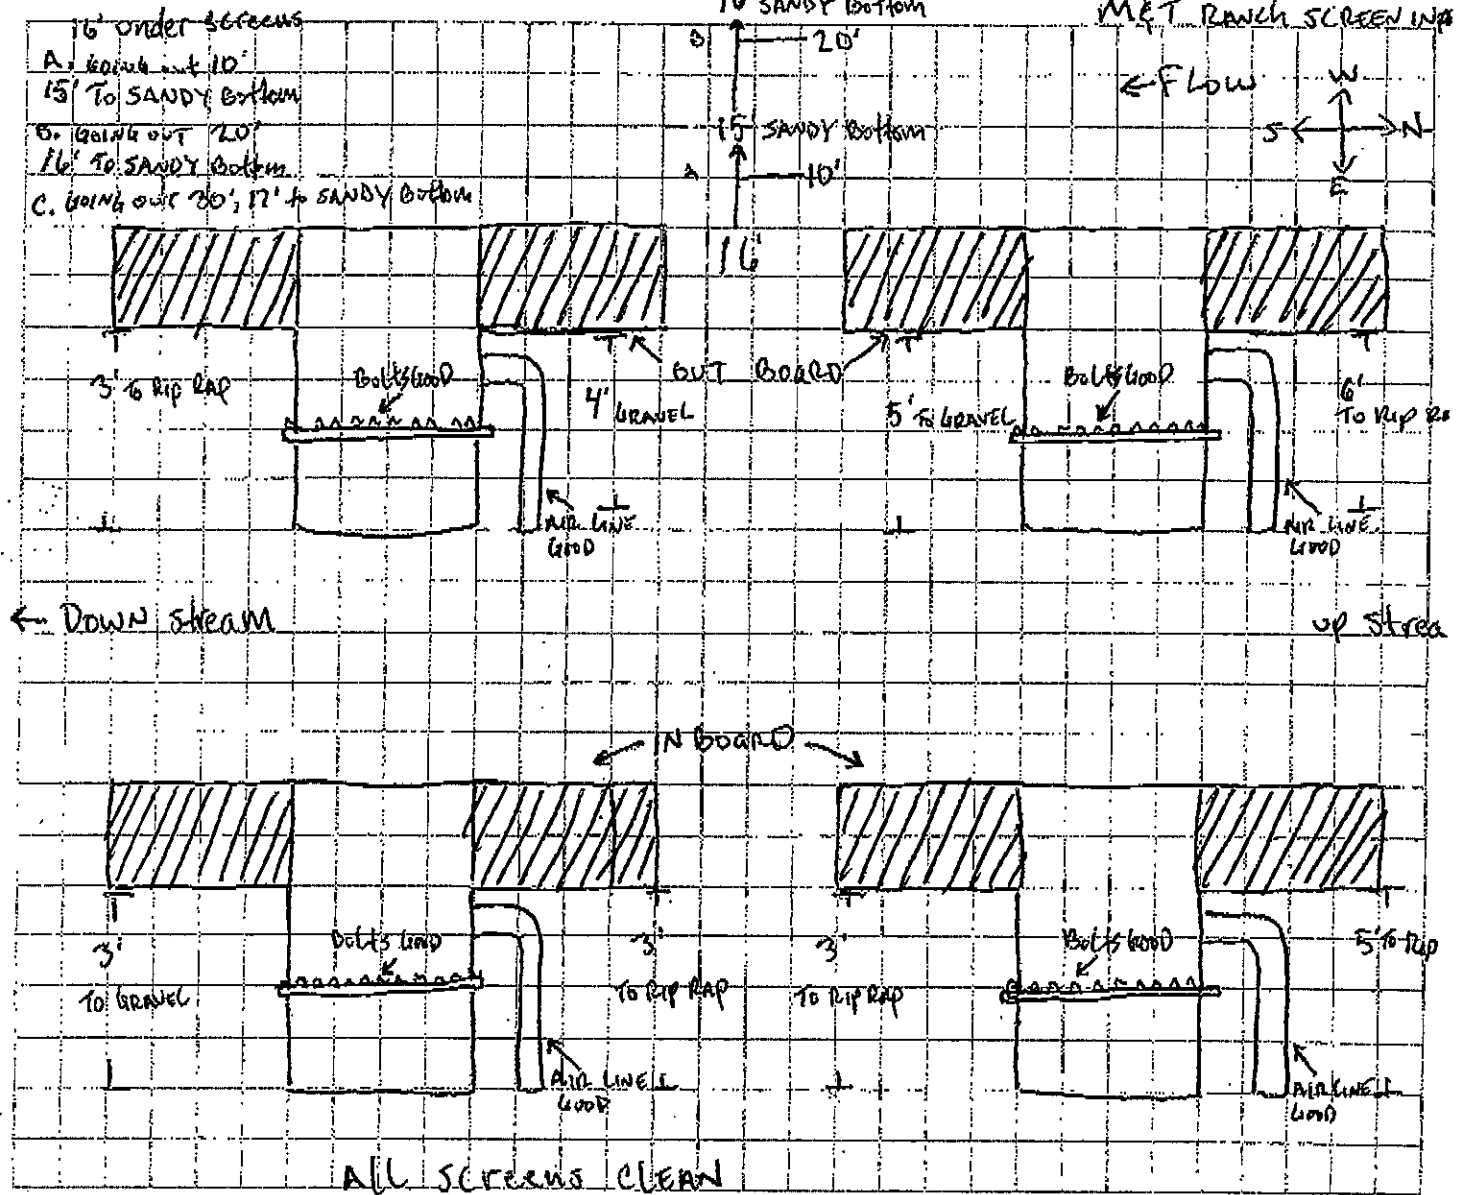 16' under screens
A. GOING out 10'
15' To SANDY Bottom
B. GOING OUT 20'
16' To SANDY Bottom
C. GOING OUT 30', 17' to SANDY Bottom
16' SANDY Bottom
B
20'
15' SANDY Bottom
A
10'
16'
M&T RANCH SCREEN
← FLOW
W
S N
E
3' To Rip RAP
Bolts GOOD
4' GRAVEL
OUT BOARD
5' To GRAVEL
Bolts GOOD
6'
To Rip
AIR LINE
GOOD
AIR LINE
GOOD
← DOWN stream
up strea
IN BOARD
3'
TO GRAVEL
Bolts GOOD
3'
TO Rip RAP
3'
TO Rip RAP
Bolts GOOD
5' To Rip
AIR LINE
GOOD
AIR LINE
GOOD
ALL Screens CLEAN